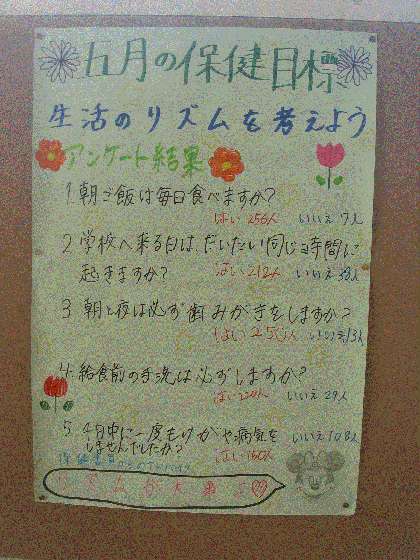 五月の保健目標
生活のリズムを考えよう
アンケート結果
1 朝ご飯は毎日食べますか?
はい 256人 いいえ 7人
2 学校へ来る日は、だいたい同じ時間に
起きますか? はい 212人 いいえ 38人
3 朝と夜は必ず歯みがきをしますか?
はい 250人 いいえ13人
4 給食前の手洗は必ずしますか?
はい 人 いいえ 29人
5 4月中に一度もけがや病気を いいえ 108人
しませんでしたか? はい 150人
保健委員
リズムが大事